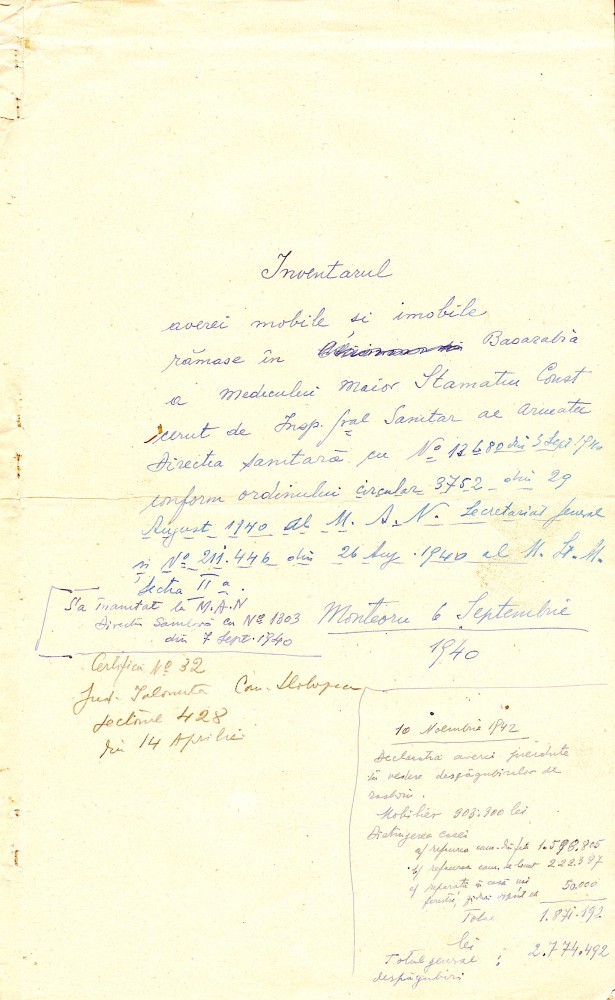 Inventarul
averei mobile si imobile
rămase în Basarabia
a medicului maior Stamatiu Const
cerut de Insp. gral Sanitar al Armatei
Directia sanitară cu Nº 12680 din 5 Sept 1940
conform ordinului circular 3752 din 29
August 1940 al M. A. N. Secretariat general
si Nº 211.446 din 26 Aug. 1940 al M. St. M.
Sectia II a.
S'a transmitat la M.A.N
Directia Sanitară cu Nº 1303
din 7 Sept. 1940
Monteoru 6 Septembrie
1940
Certificat Nº 32
Jud. Ialomita Com.
sectiune 428
din 14 Aprilie
10 Noembrie 1942
Declaratia averei pierdute
în vedere despăgubirilor de
razboiu.
Mobilier 903.300 lei
Distrugerea casei
a/ refacerea cam. din fată 1.598.805
b/ refacerea cam. de locuit 222.387
c/ reparatii 50.000
Total 1.871.192
lei
Total general : 2.774.492
despăgubiri